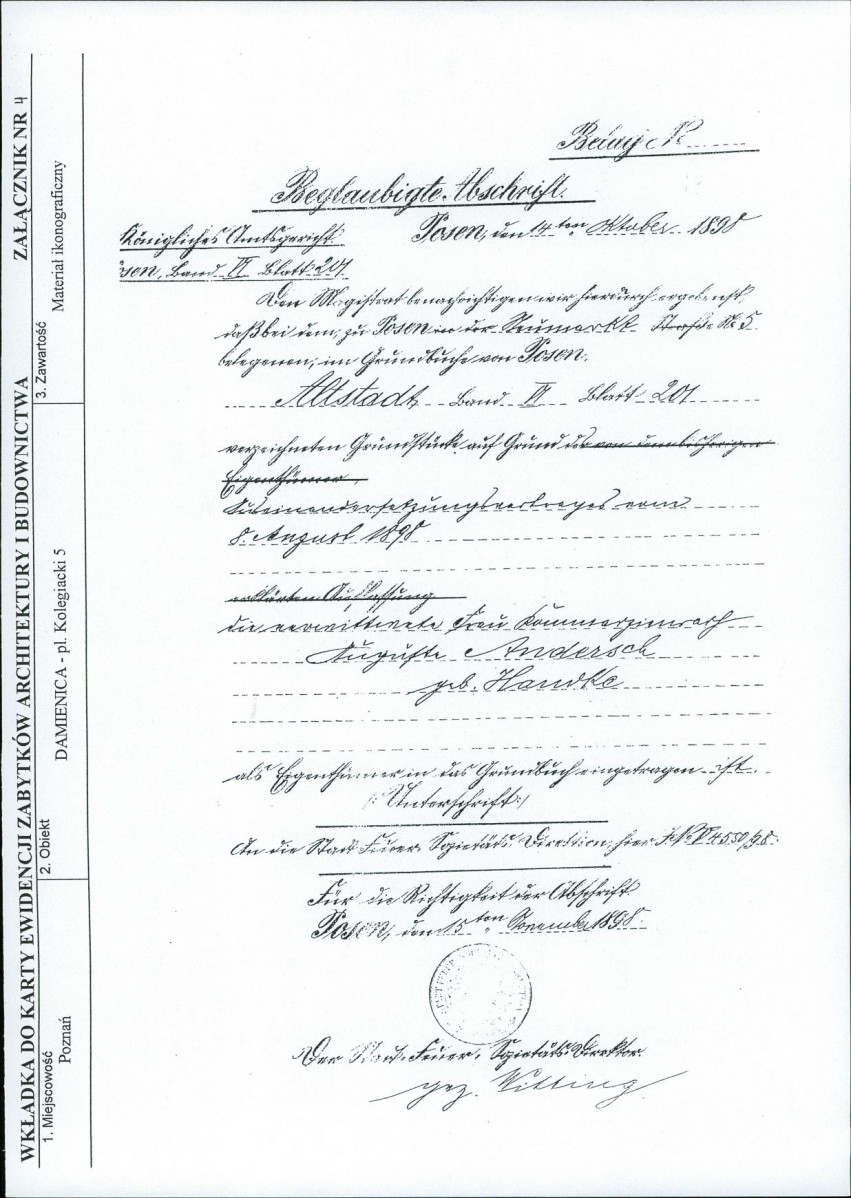 WKŁADKA DO KARTY EWIDENCJI ZABYTKÓW ARCHITEKTURY I BUDOWNICTWA ZAŁĄCZNIK NR 4
1. Miejscowość
Poznań
2. Obiekt
DAMIENICA - pl. Kolegiacki 5
3. Zawartość
Materiał ikonograficzny
Belag №
Beglaubigte Abschrift.
Königliches Amtsgericht
Posen, den 14ten Oktober 1898
sen, Band VI Blatt 201
Den Magistrat benachrichtigen wir hierdurch ergebenst
daß bei dem, zu Posen in der Neumarkt Straße № 5
belegenen, im Grundbuche von Posen.
Altstadt Band VI Blatt 201
verzeichneten Grundstücke auf Grund des von dem bisherigen
Eigenthümer
Auseinandersetzungsvertrages vom
8. August 1898
erklärten Auflassung
die verwittwete Frau Kommerzienrath
Auguste Andersch
geb. Handke
als Eigenthümer in das Grundbuch eingetragen ist.
/: Unterschrift :/
An die Stadt Feuer Sozietäts Direktion, hier J. № VI 4550/98.
Für die Richtigkeit der Abschrift
Posen, den 15ten November 1898
Der Stadt Feuer Sozietäts Direktor
gez. Witting